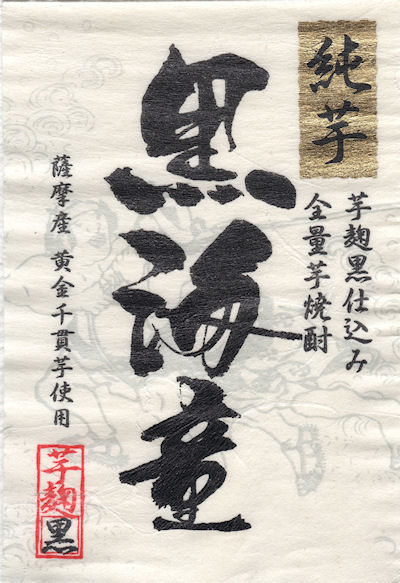 純芋
芋麹黒仕込み
全量芋焼酎
黒海童
薩摩産 黄金千貫芋使用
芋麹
黒